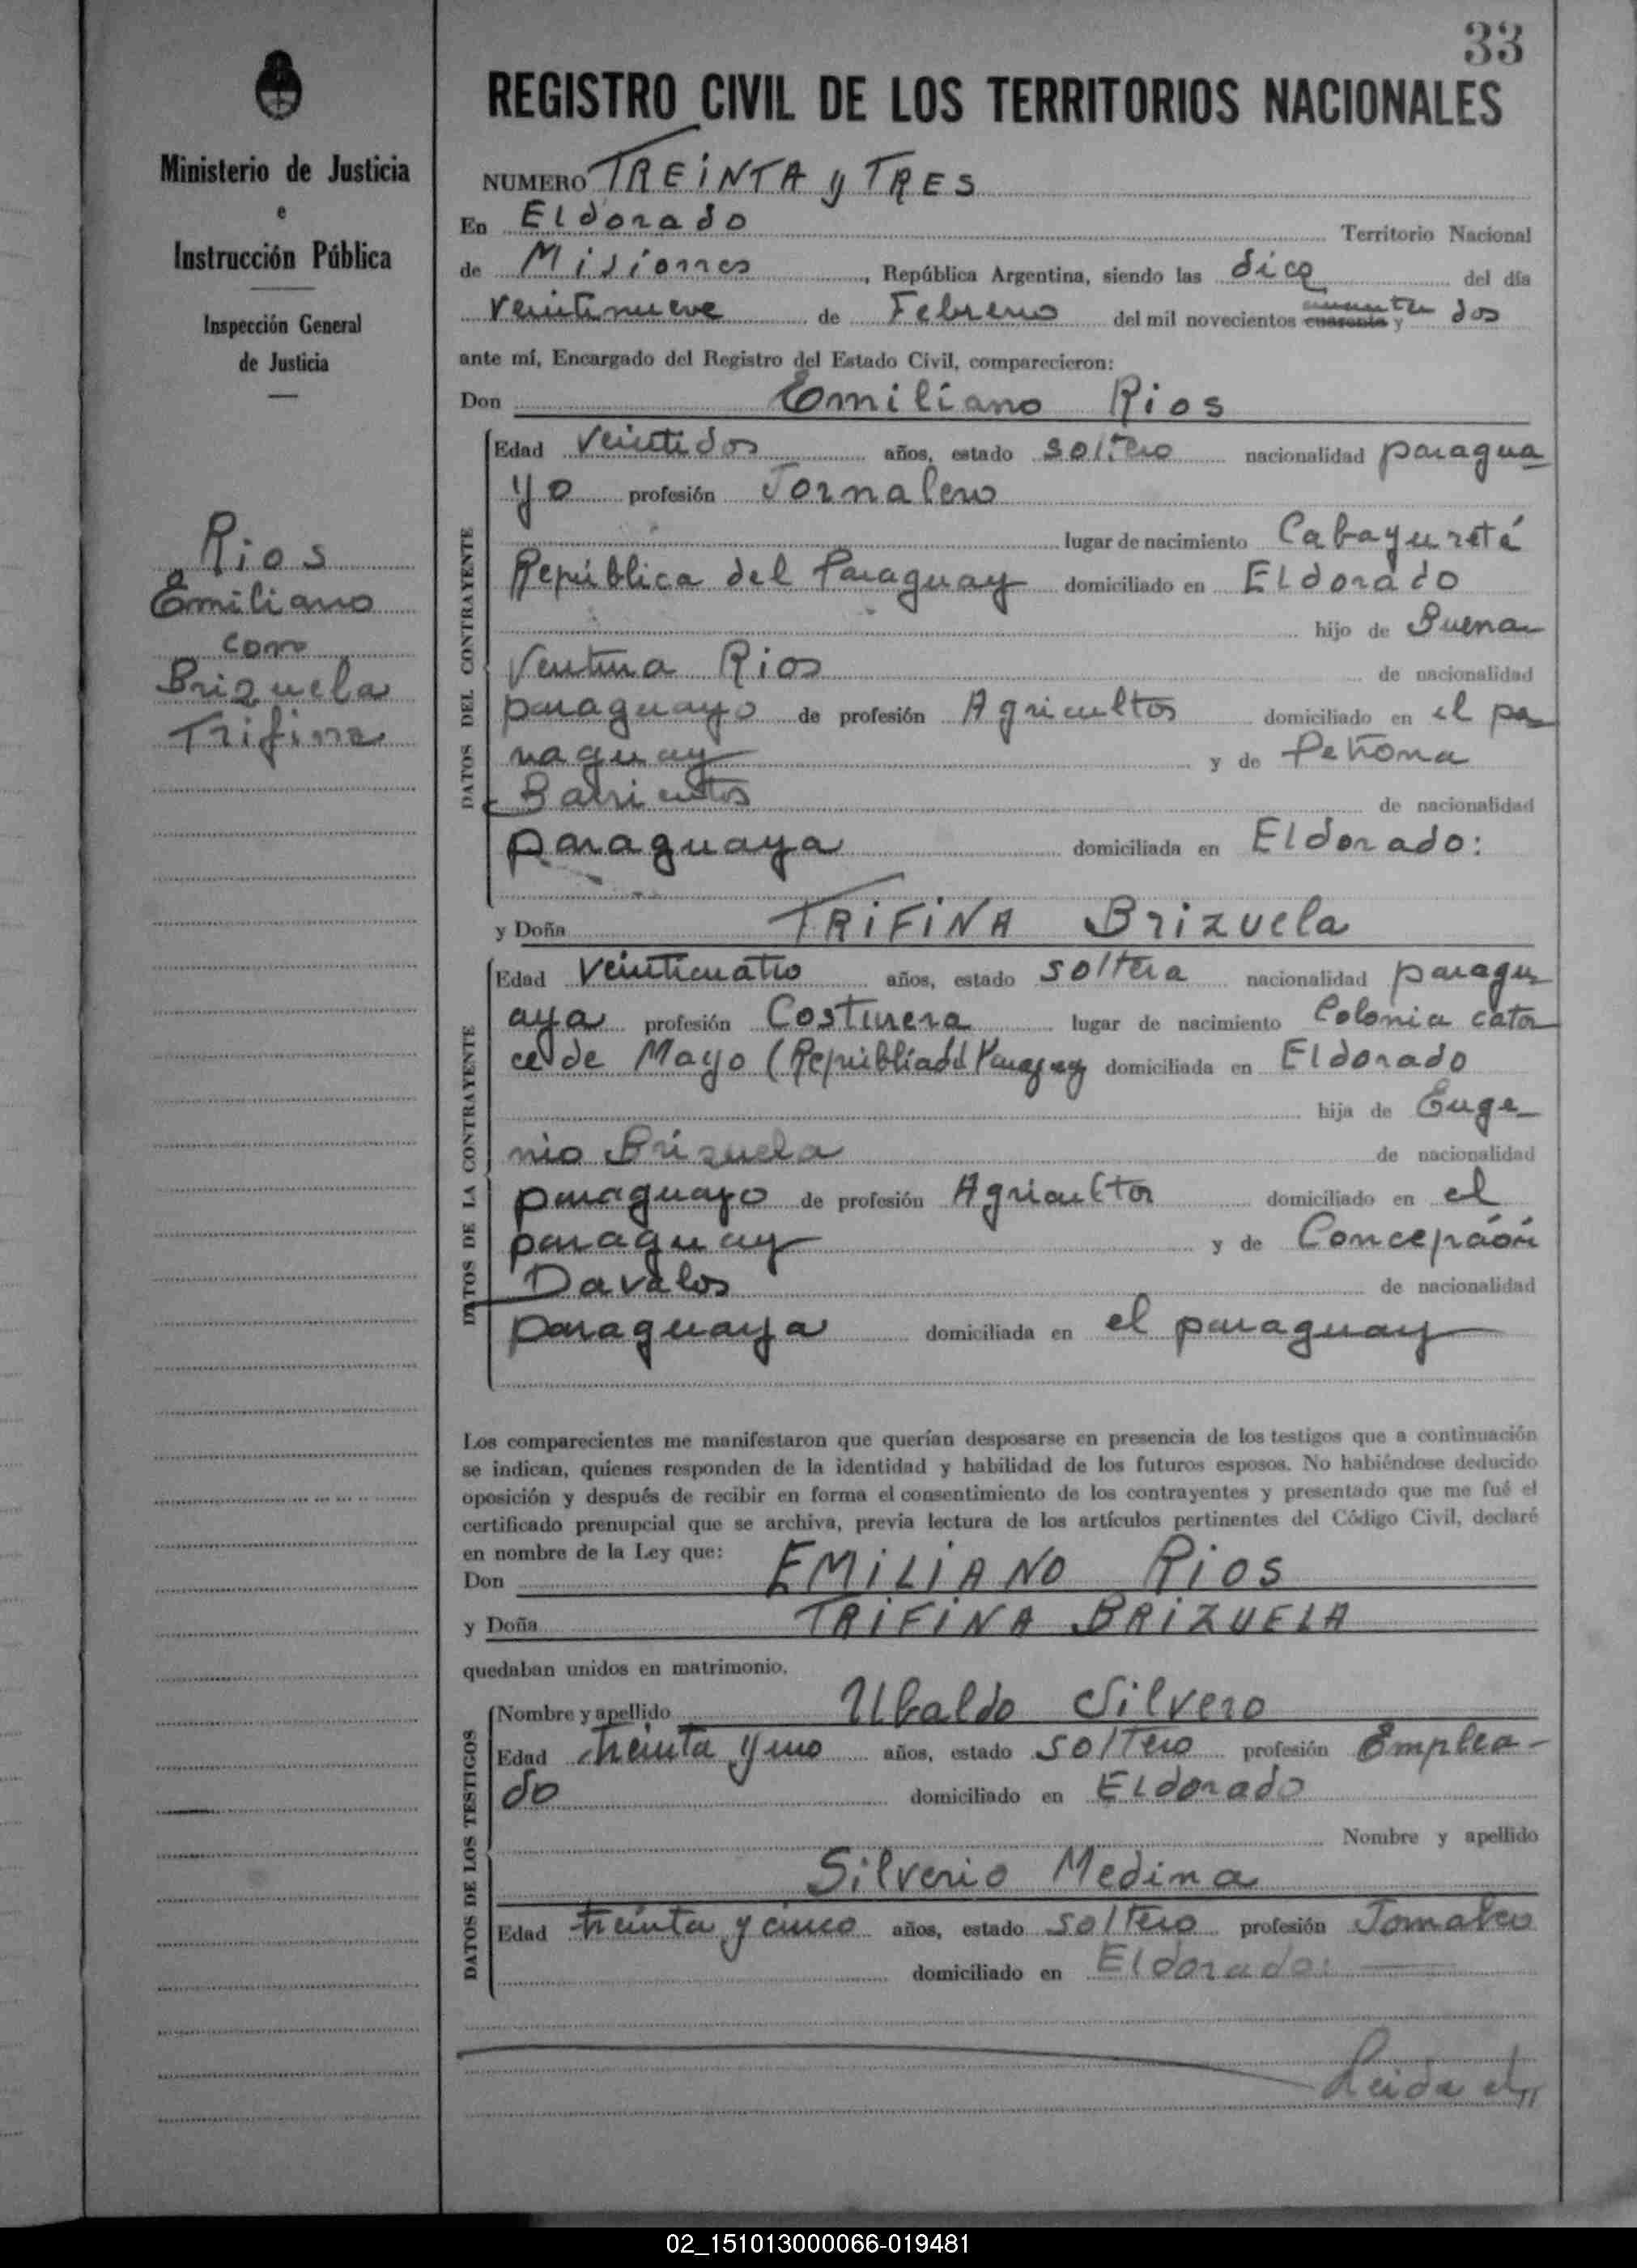 33
Ministerio de Justicia
e
Instrucción Pública
Inspección General
de Justicia
Rios
Emiliano
con
Brizuela
Trifina
REGISTRO CIVIL DE LOS TERRITORIOS NACIONALES
NUMERO TREINTA y TRES
En Eldorado Territorio Nacional
de Misiones, República Argentina, siendo las diez del día
veintinueve de Febrero del mil novecientos cuarenta y dos
ante mí, Encargado del Registro del Estado Civil, comparecieron:
Don Emiliano Rios
DATOS DEL CONTRAYENTE
Edad veintidos años, estado soltero nacionalidad paragua
yo profesión Jornalero
lugar de nacimiento Cabayuretá
República del Paraguay domiciliado en Eldorado
hijo de Buena
Ventura Rios de nacionalidad
paraguayo de profesión Agricultor domiciliado en el pa
raguay y de Petrona
Barrientos de nacionalidad
paraguaya domiciliada en Eldorado:
y Doña TRIFINA Brizuela
DATOS DE LA CONTRAYENTE
Edad veinticuatro años, estado soltera nacionalidad paragu
aya profesión Costurera lugar de nacimiento Colonia cator
ce de Mayo (República del Paraguay domiciliada en Eldorado
hija de Euge
nio Brizuela de nacionalidad
paraguayo de profesión Agricultor domiciliado en el
paraguay y de Concepción
Davalos de nacionalidad
paraguaya domiciliada en el paraguay
Los comparecientes me manifestaron que querían desposarse en presencia de los testigos que a continuación
se indican, quienes responden de la identidad y habilidad de los futuros esposos. No habiéndose deducido
oposición y después de recibir en forma el consentimiento de los contrayentes y presentado que me fué el
certificado prenupcial que se archiva, previa lectura de los artículos pertinentes del Código Civil, declaré
en nombre de la Ley que:
Don EMILIANO Rios
y Doña TRIFINA BRIZUELA
quedaban unidos en matrimonio.
DATOS DE LOS TESTIGOS
Nombre y apellido Ubaldo Silvero
Edad treinta y uno años, estado soltero profesión Emplea-
do domiciliado en Eldorado
Nombre y apellido
Silverio Medina
Edad treinta y cinco años, estado soltero profesión Jornalero
domiciliado en Eldorado:
Leida el
02_151013000066-019481